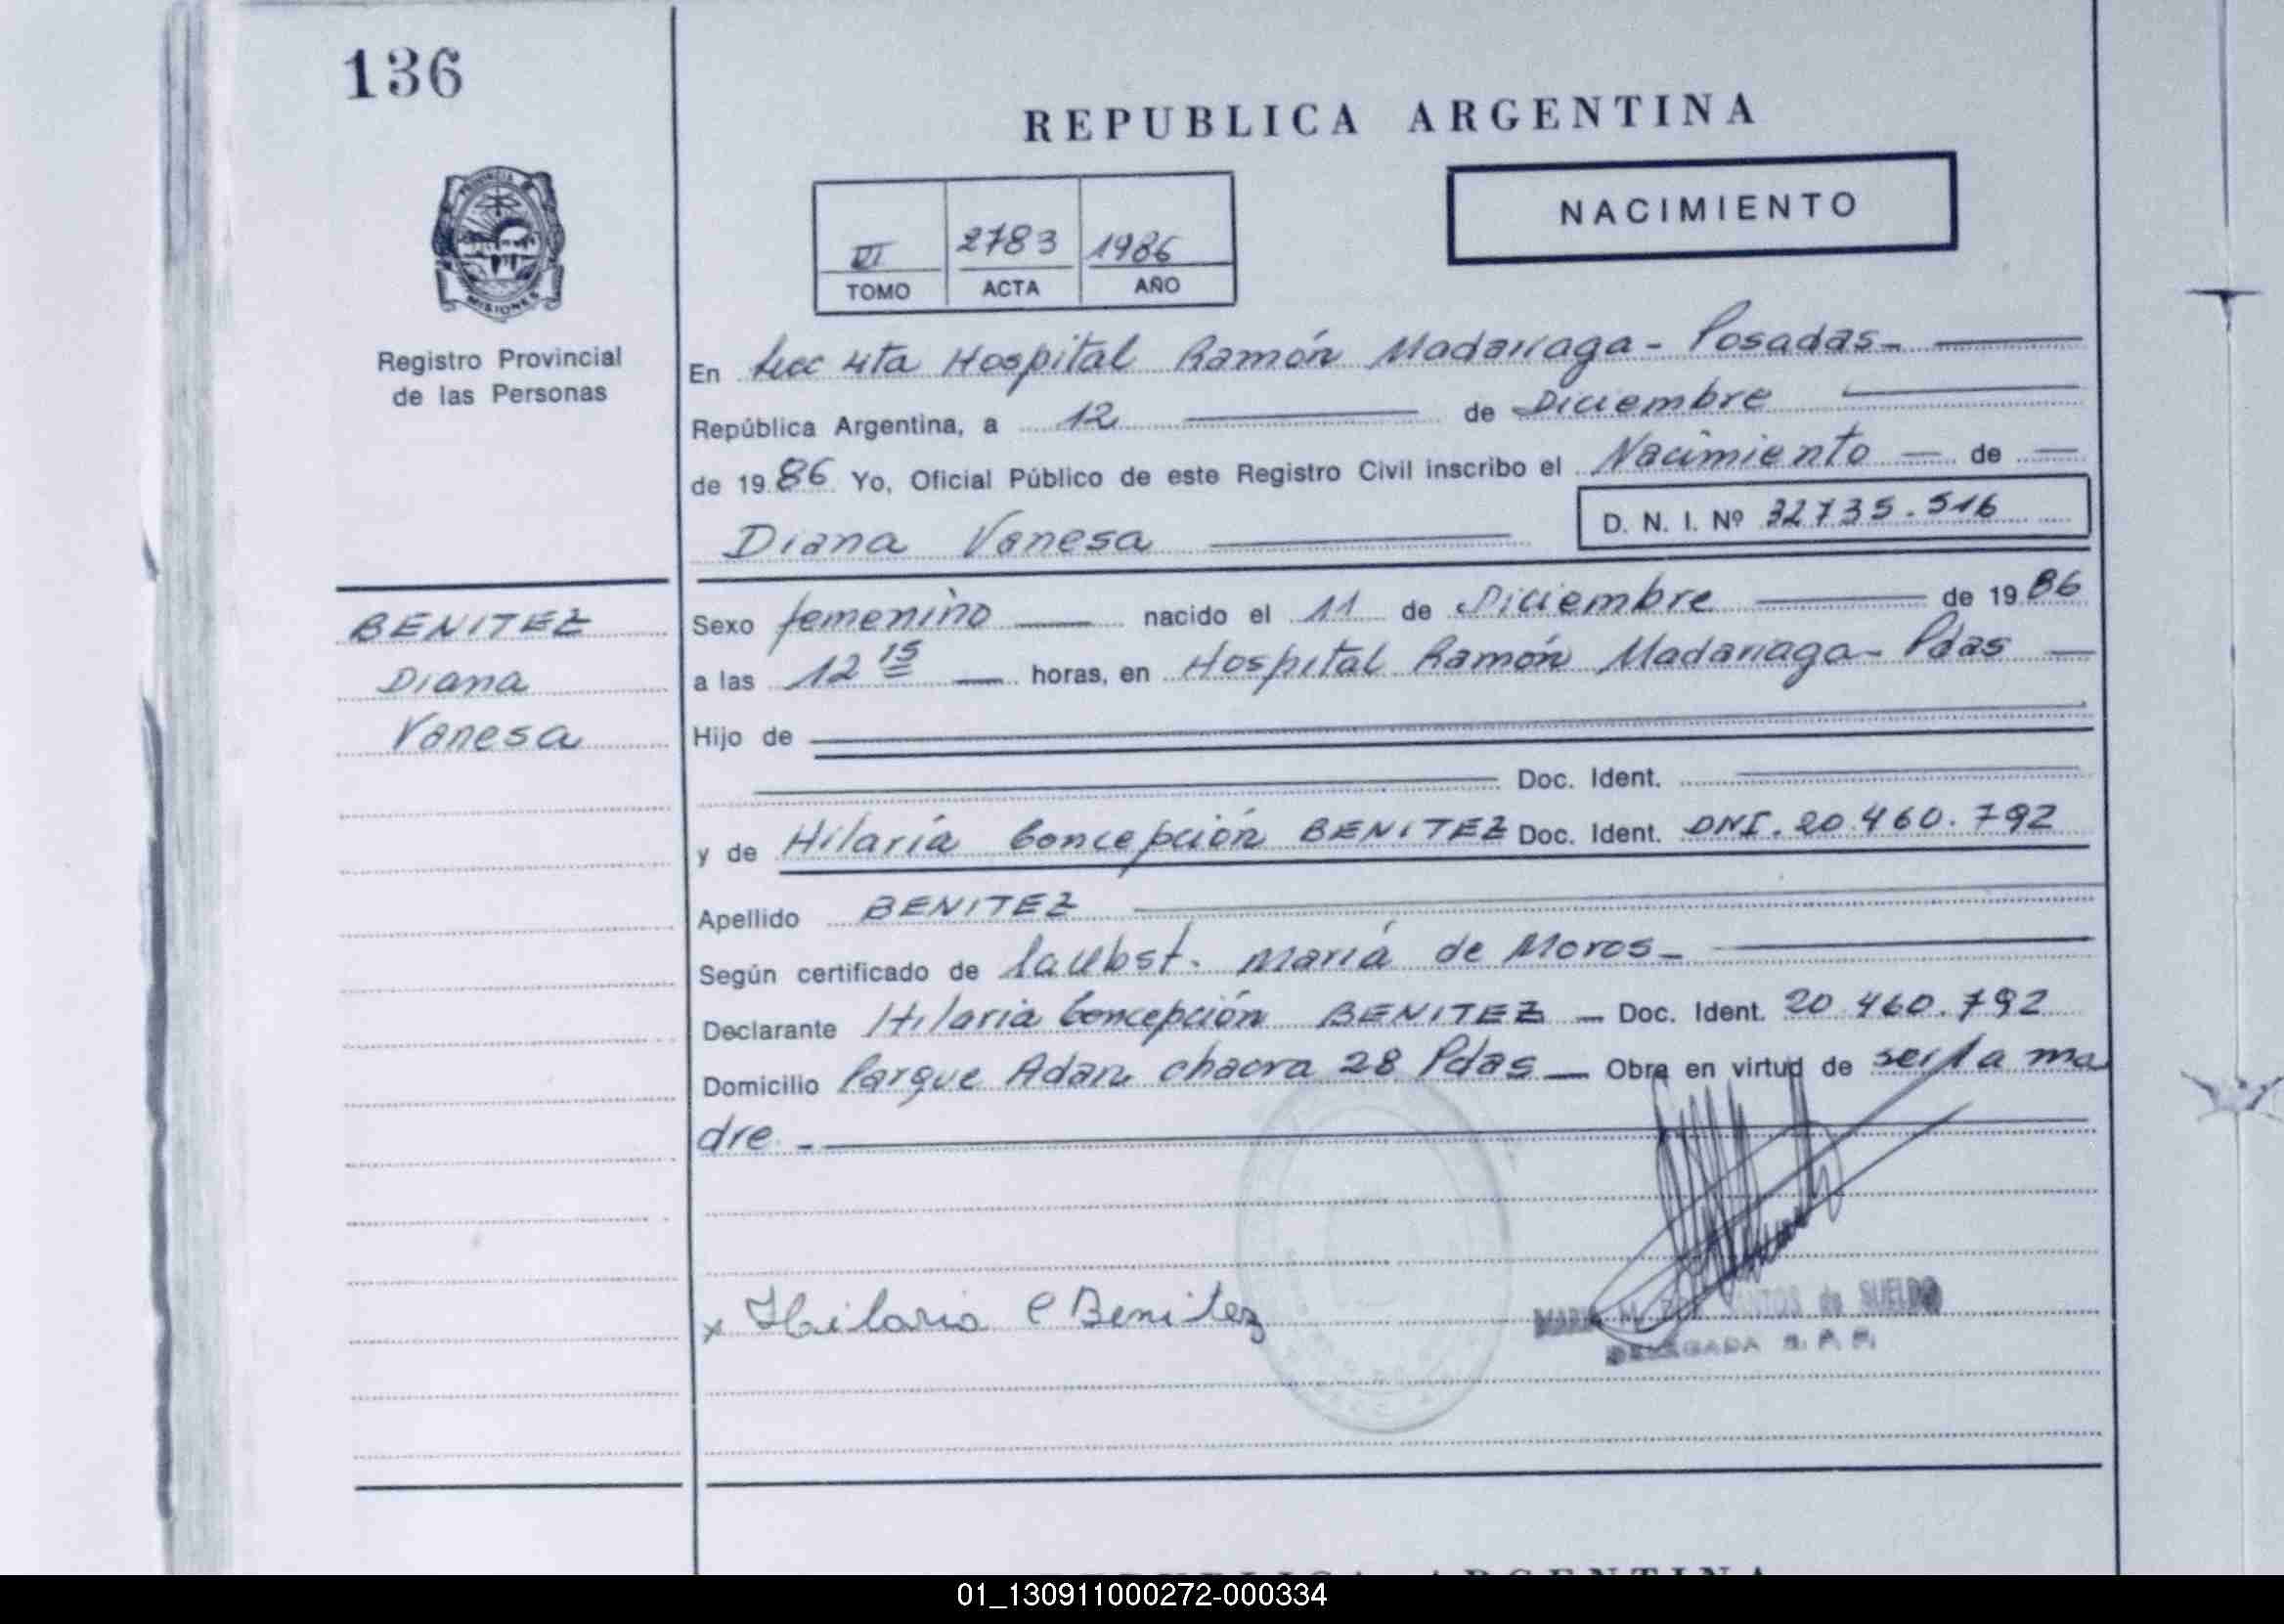 136
REPUBLICA ARGENTINA
NACIMIENTO
VI 2783 1986
TOMO ACTA AÑO
PROVINCIA DE
MISIONES
Registro Provincial
de las Personas
En Secc 4ta Hospital Ramón Madariaga - Posadas -
República Argentina, a 12 de Diciembre
de 1986 Yo, Oficial Público de este Registro Civil inscribo el Nacimiento de
Diana Vanesa D. N. I. Nº 32735.516
BENITEZ
Diana
Vanesa
Sexo femenino nacido el 11 de Diciembre de 1986
a las 12 15 horas, en Hospital Ramón Madariaga - Pdas
Hijo de
Doc. Ident.
y de Hilaria Concepción BENITEZ Doc. Ident. DNI. 20.460.792
Apellido BENITEZ
Según certificado de la Obst. María de Moros -
Declarante Hilaria Concepción BENITEZ - Doc. Ident. 20.460.792
Domicilio Parque Adam chacra 28 Pdas - Obra en virtud de ser la ma
dre. -
x Hilaria C Benitez
de SUELDO
DELEGADA R. P. P.
REPUBLICA ARGENTINA
01_130911000272-000334